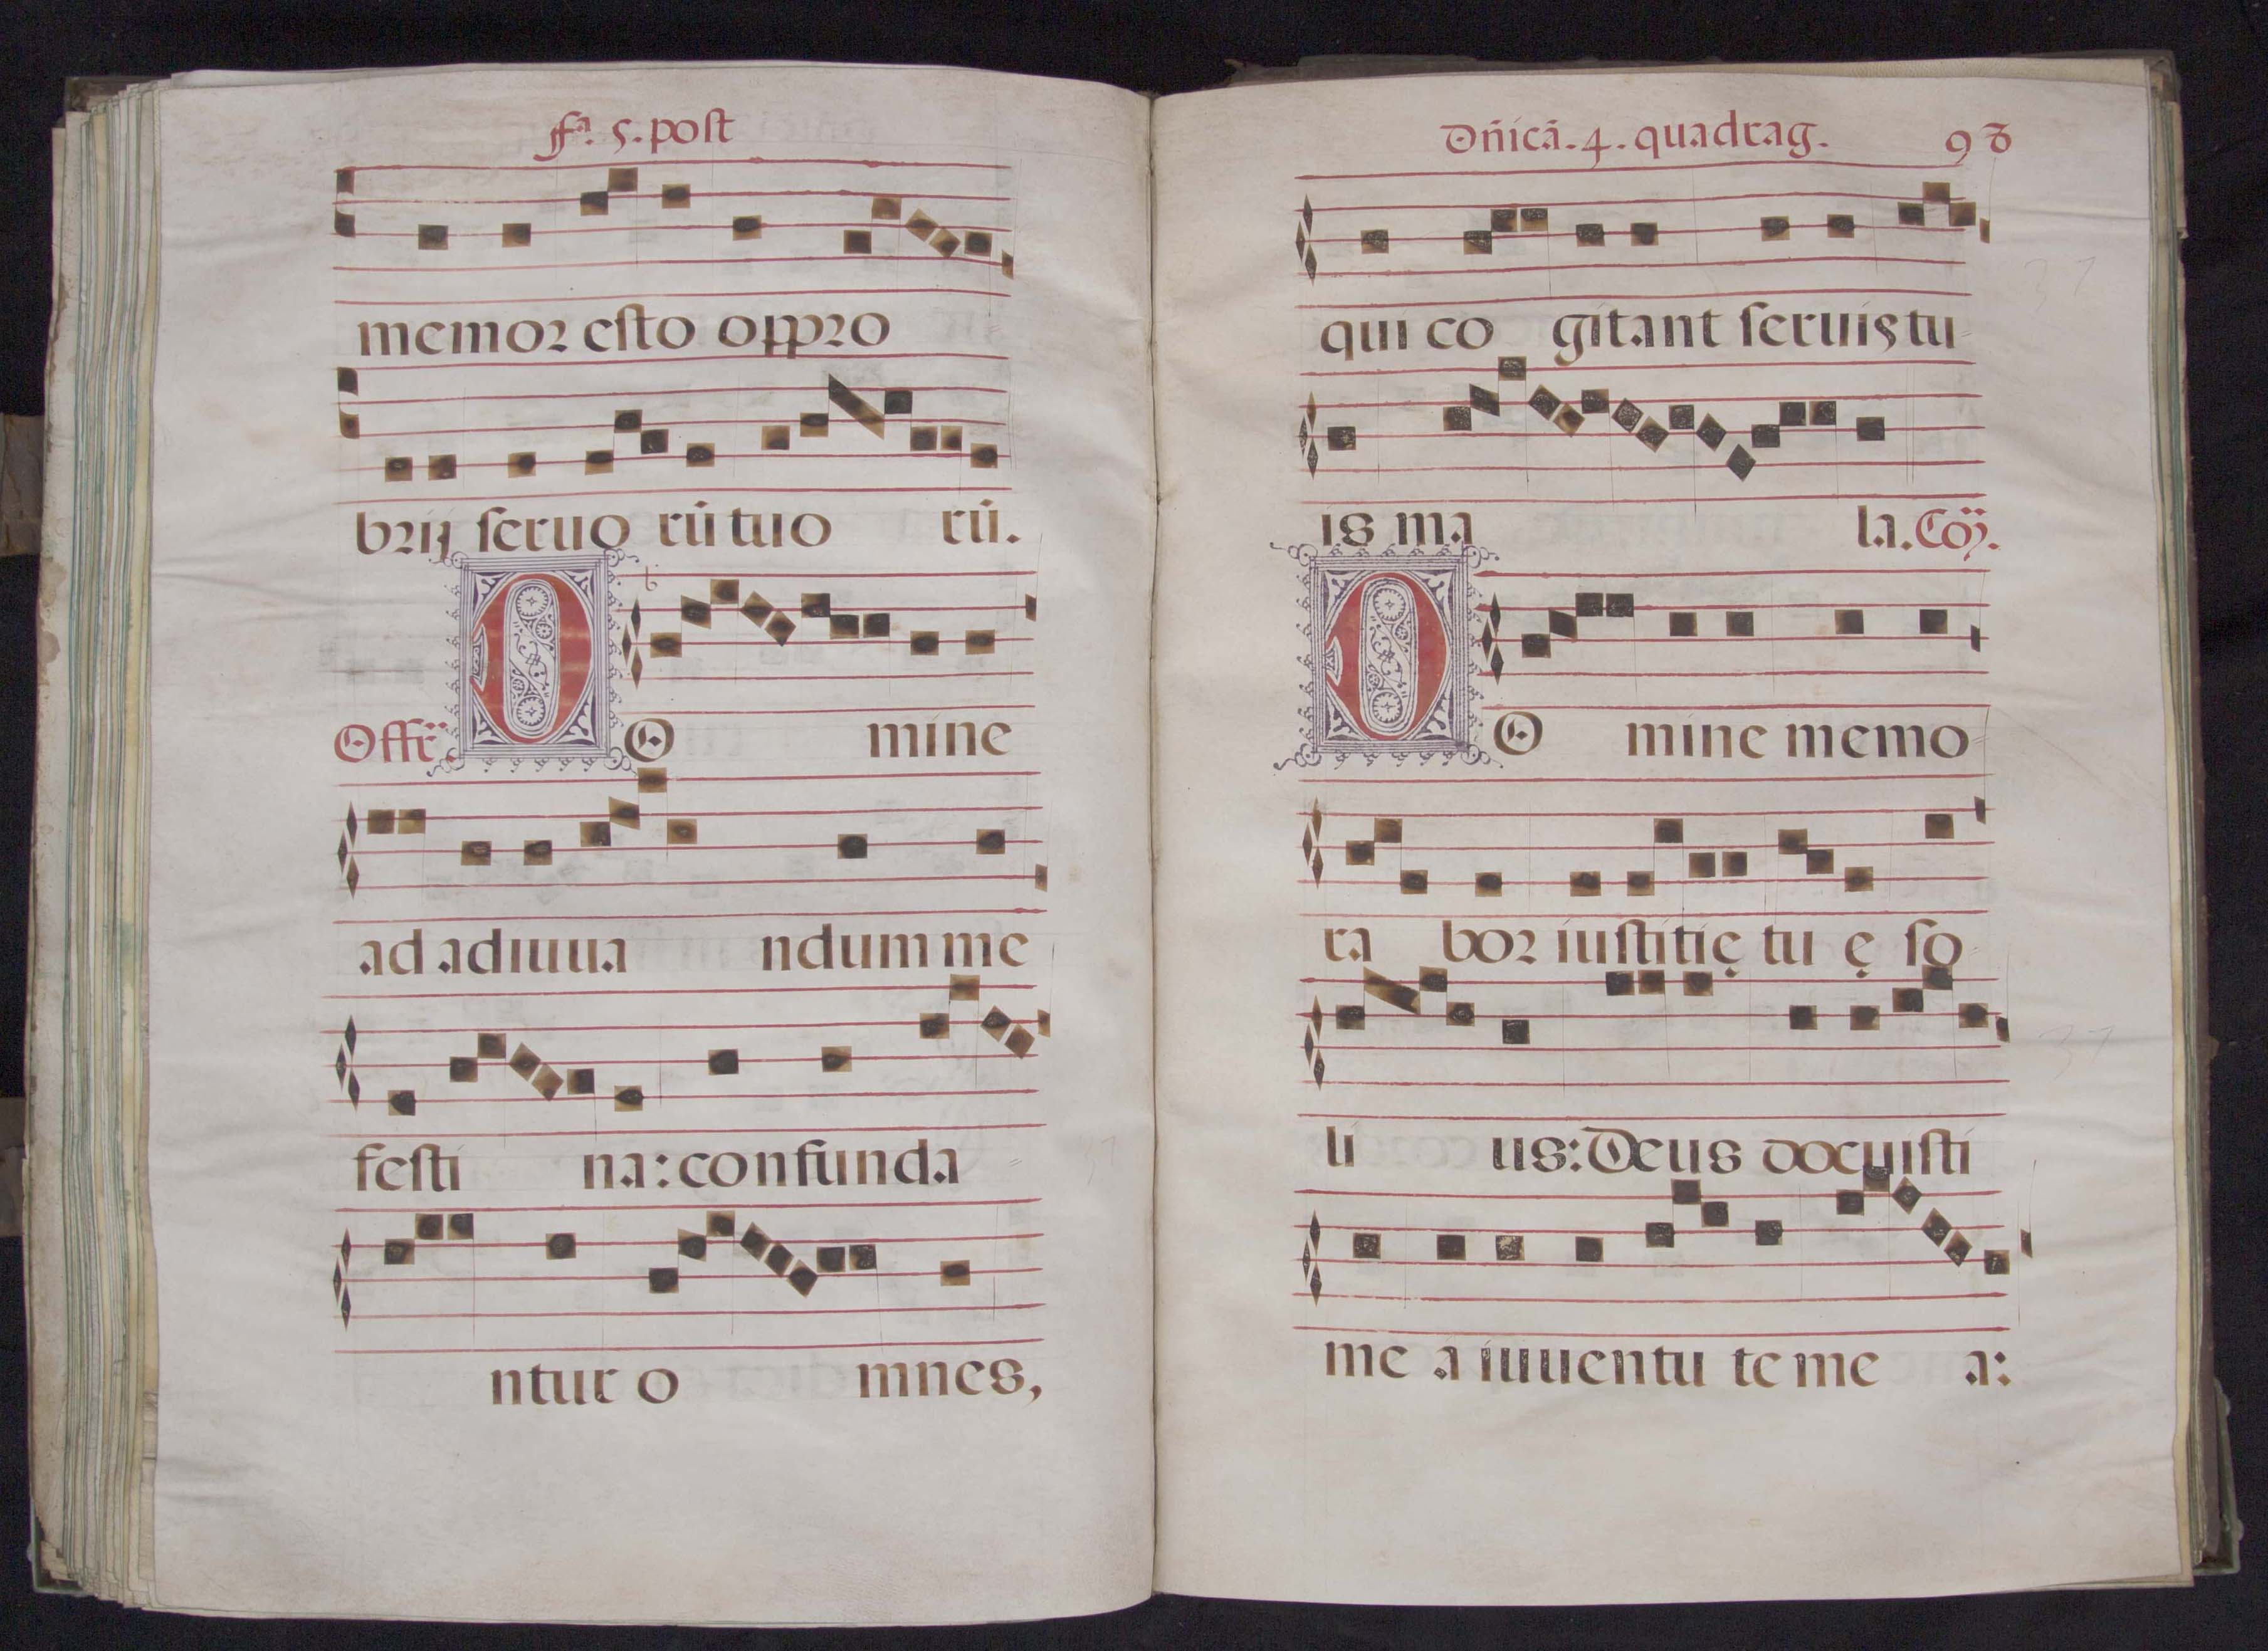 fa. 5. post
memor esto oppro
brij seruo rū tuo rū.
Offr̄. DO mine
ad adiuua ndum me
festi na: confunda
ntur o mnes,
Dn̄icā. 4. quadrag. 98
qui co gitant seruis tu-
is ma la. Cōȝ.
DO mine memo-
ra bor iustitię tu ę so-
li us: Deus docuisti
me a iuuentu te me a: